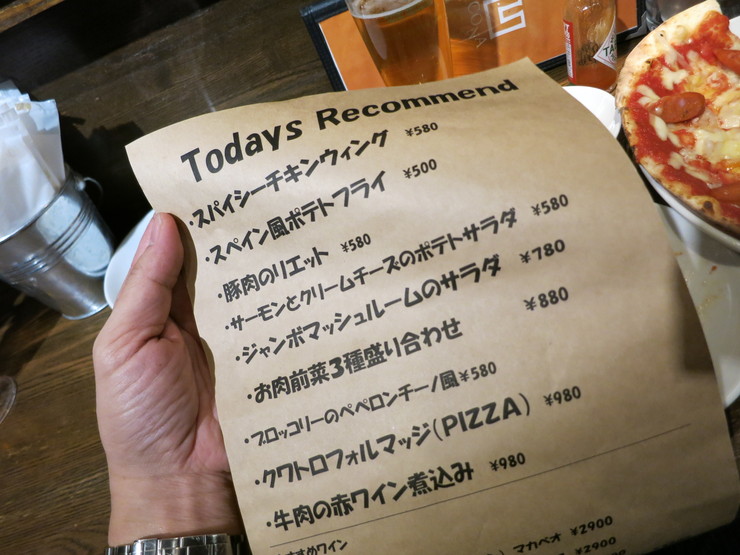 Todays Recommend
・スパイシーチキンウィング ¥580
・スペイン風ポテトフライ ¥500
・豚肉のリエット ¥580
・サーモンとクリームチーズのポテトサラダ ¥580
・ジャンボマッシュルームのサラダ ¥780
・お肉前菜3種盛り合わせ ¥880
・ブロッコリーのペペロンチーノ風 ¥580
・クワトロフォルマッジ(PIZZA) ¥980
・牛肉の赤ワイン煮込み ¥980
すすめワイン
マカベオ ¥2900
¥2900